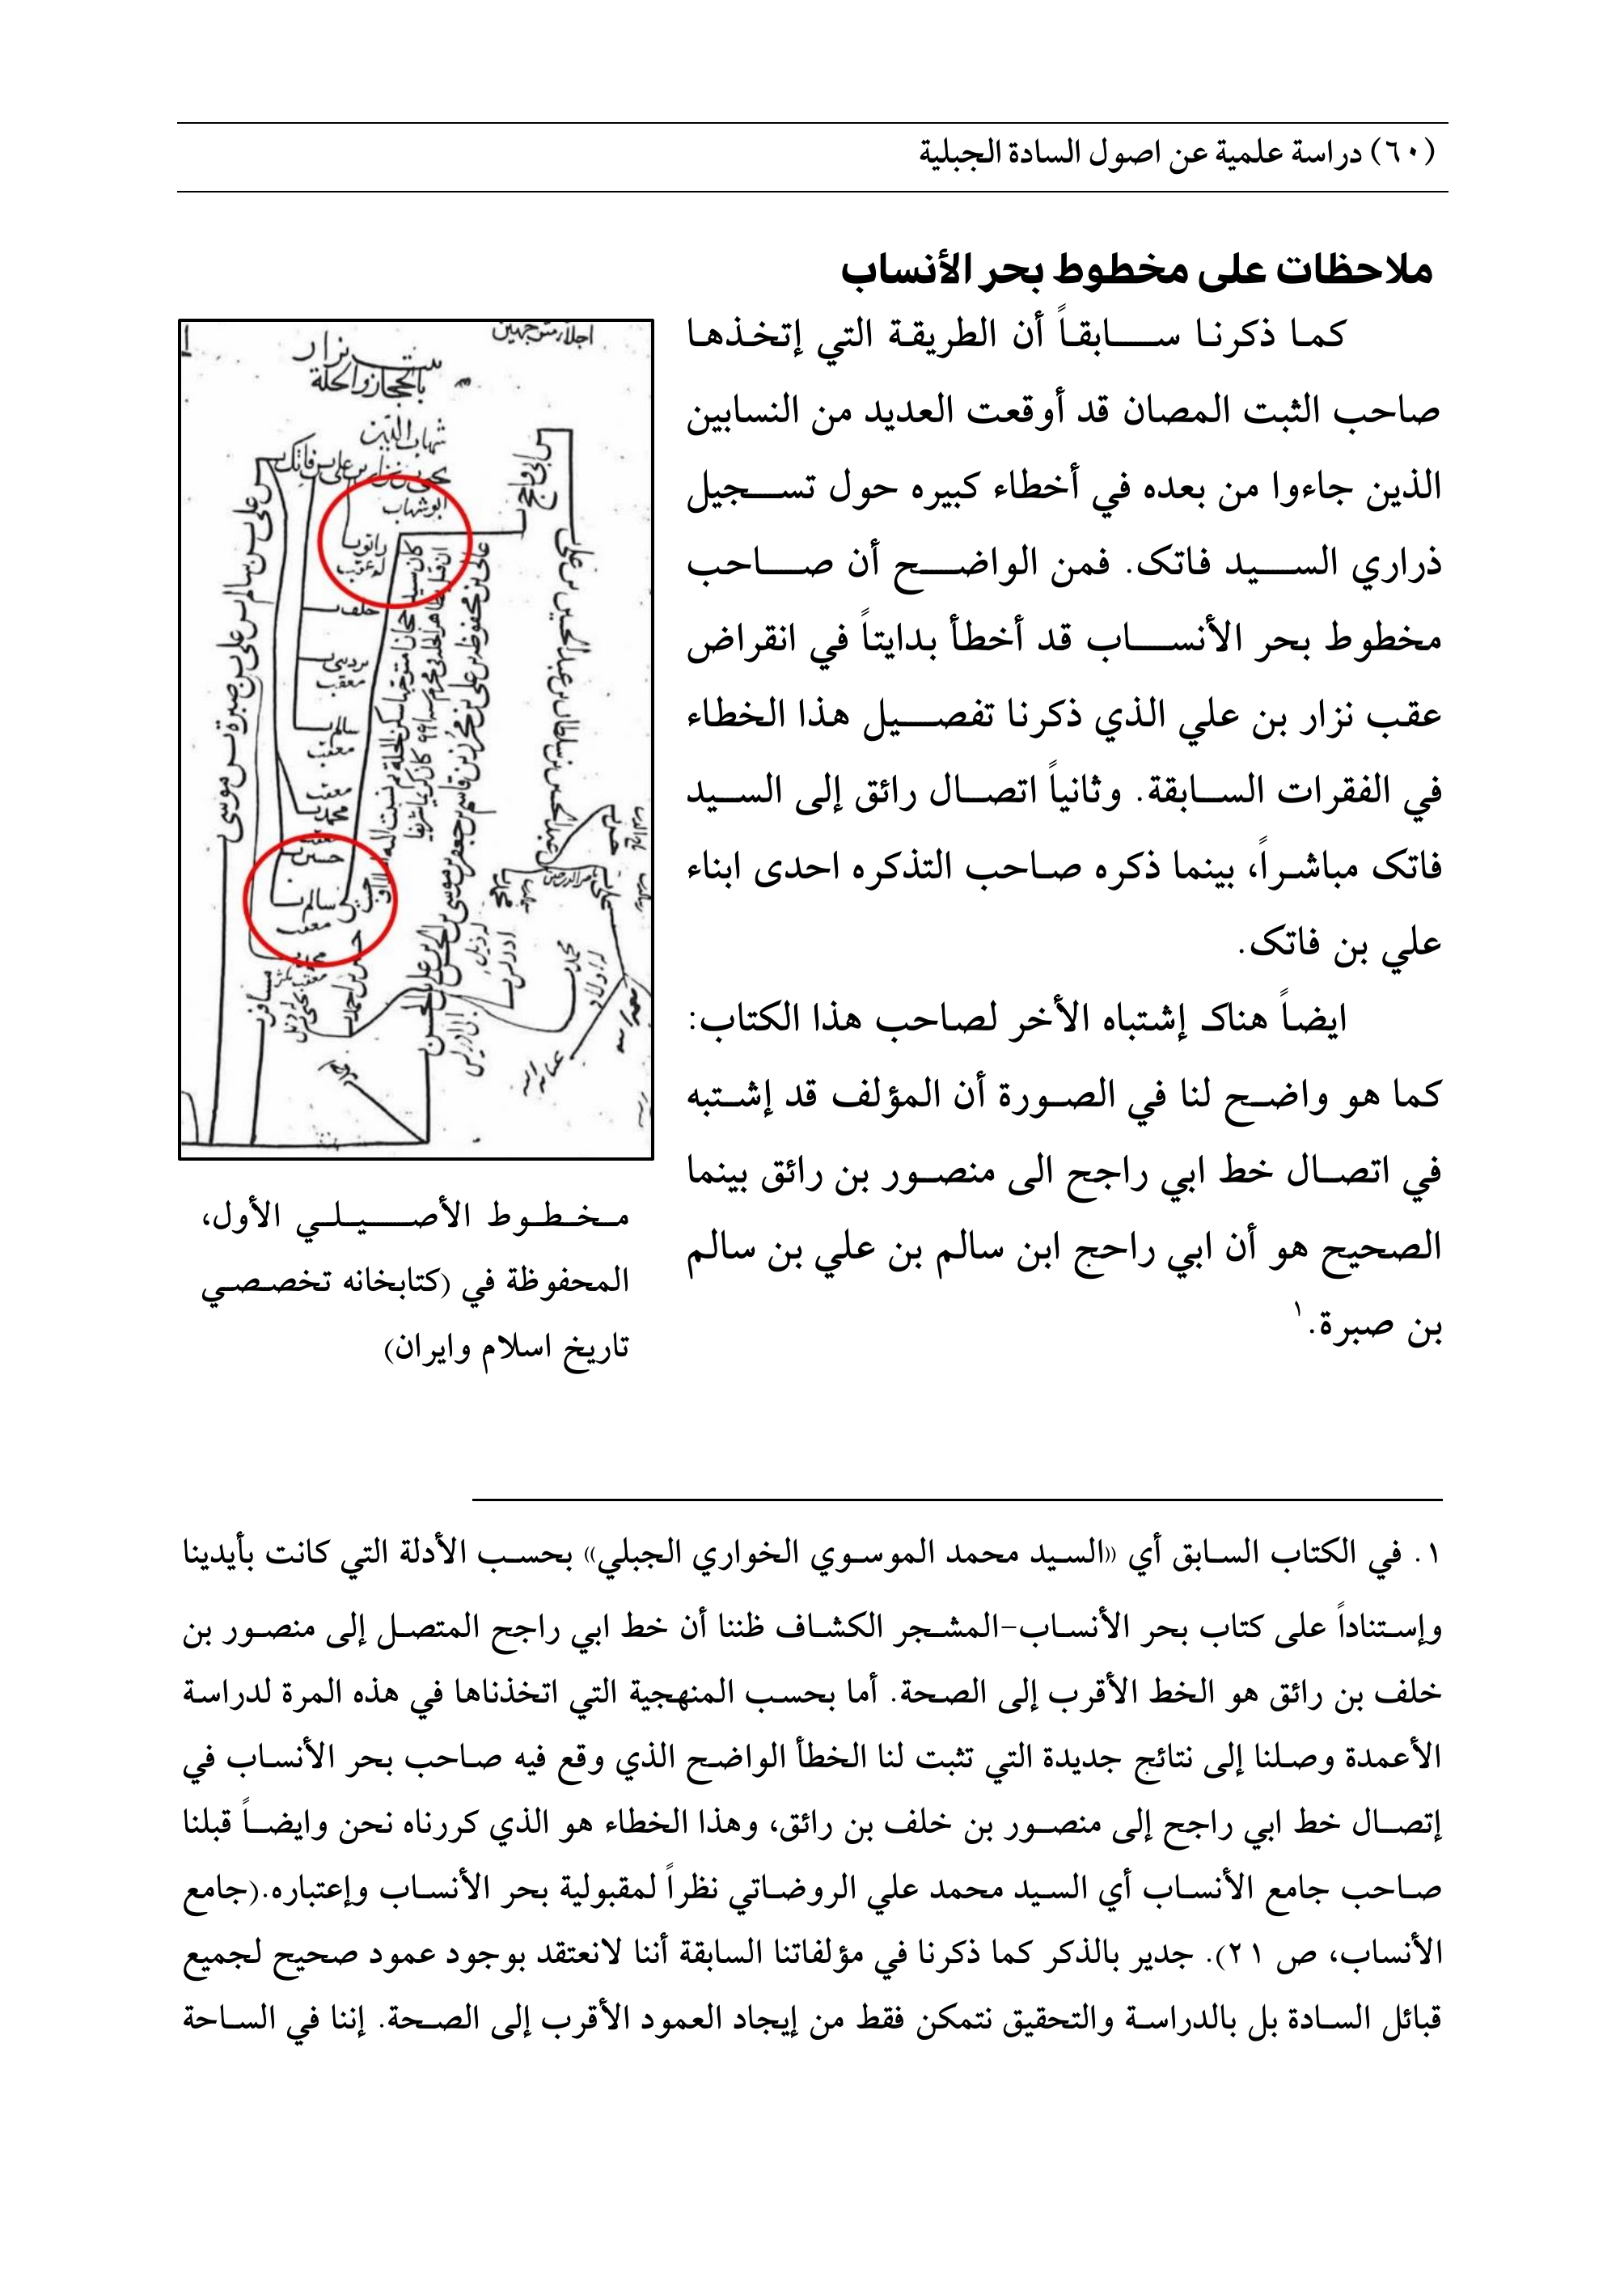 (٦٠) دراسة علمية عن اصول السادة الجبلية
ملاحظات على مخطوط بحر الأنساب
كما ذكرنا سابقاً أن الطريقة التي إتخذها
صاحب الثبت المصان قد أوقعت العديد من النسابين
الذين جاءوا من بعده في أخطاء كبيره حول تسجيل
ذراري السيد فاتک. فمن الواضح أن صاحب
مخطوط بحر الأنساب قد أخطأ بدايتاً في انقراض
عقب نزار بن علي الذي ذكرنا تفصيل هذا الخطاء
في الفقرات السابقة. وثانياً اتصال رائق إلى السيد
فاتک مباشراً، بينما ذكره صاحب التذكره احدى ابناء
علي بن فاتک.
ايضاً هناک إشتباه الأخر لصاحب هذا الكتاب:
كما هو واضح لنا في الصورة أن المؤلف قد إشتبه
في اتصال خط ابي راجح الى منصور بن رائق بينما
الصحيح هو أن ابي راحج ابن سالم بن علي بن سالم
بن صبرة.١
اجلا متوجهين
نزار
بالحجاز والحلة
شهاب الدين
يحيى بن نزار بن علي بن فاتك
ابو شهاب
له عقب
خلف
معقب
سالم
معقب
معقب
محمد
حسين
سالم
معقب
مسافر
مخطوط الأصيلي الأول،
المحفوظة في (كتابخانه تخصصي
تاريخ اسلام وايران)
١. في الكتاب السابق أي «السيد محمد الموسوي الخواري الجبلي» بحسب الأدلة التي كانت بأيدينا
وإستناداً على كتاب بحر الأنساب-المشجر الكشاف ظننا أن خط ابي راجح المتصل إلى منصور بن
خلف بن رائق هو الخط الأقرب إلى الصحة. أما بحسب المنهجية التي اتخذناها في هذه المرة لدراسة
الأعمدة وصلنا إلى نتائج جديدة التي تثبت لنا الخطأ الواضح الذي وقع فيه صاحب بحر الأنساب في
إتصال خط ابي راجح إلى منصور بن خلف بن رائق، وهذا الخطاء هو الذي كررناه نحن وايضاً قبلنا
صاحب جامع الأنساب أي السيد محمد علي الروضاتي نظراً لمقبولية بحر الأنساب وإعتباره.(جامع
الأنساب، ص ٢١). جدير بالذكر كما ذكرنا في مؤلفاتنا السابقة أننا لانعتقد بوجود عمود صحيح لجميع
قبائل السادة بل بالدراسة والتحقيق نتمكن فقط من إيجاد العمود الأقرب إلى الصحة. إننا في الساحة